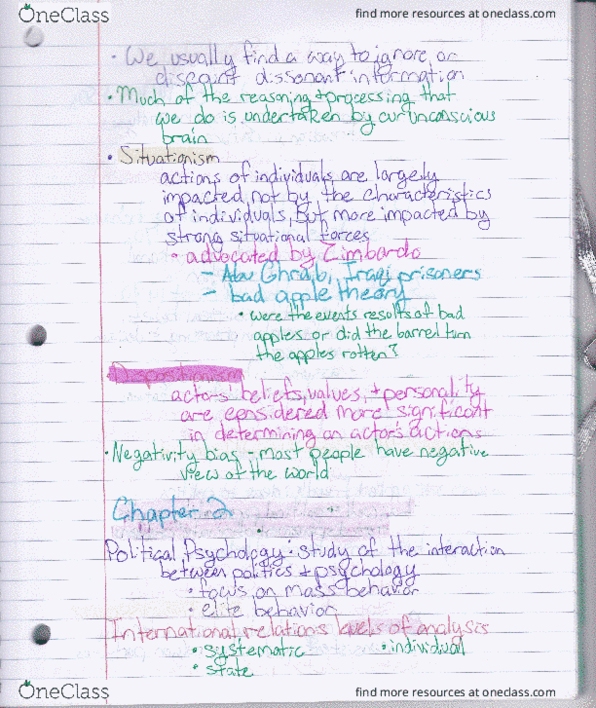 OneClass
find more resources at oneclass.com
• We usually find a way to ignore or
discount dissonant information
• Much of the reasoning + processing that
we do is undertaken by our unconscious
brain
• Situationism
actions of individuals are largely
impacted not by the characteristics
of individuals, but more impacted by
strong situational forces
• advocated by Zimbardo
– Abu Ghraib, Iraqi prisoners
– bad apple theory
• were the events results of bad
apples or did the barrel turn
the apples rotten?
Dispositionism
actors' beliefs, values, + personality
are considered more significant
in determining an actor's actions
• Negativity bias - most people have negative
view of the world
Chapter 2
Political Psychology: study of the interaction
between politics + psychology
• focus on mass behavior
• elite behavior
International relations levels of analysis
• systematic • individual
• state
OneClass
find more resources at oneclass.com